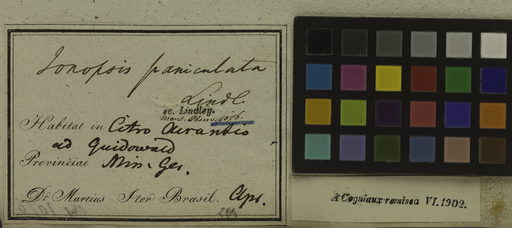 Ionopsis paniculata
Lindl
sc. Lindley.
Habitat in Citro Aurantio
ad Guidowald
Provinciae Min. Ger.
Dr Martius Iter Brasil. Apr.
A Cogniaux revisea VI. 1902.